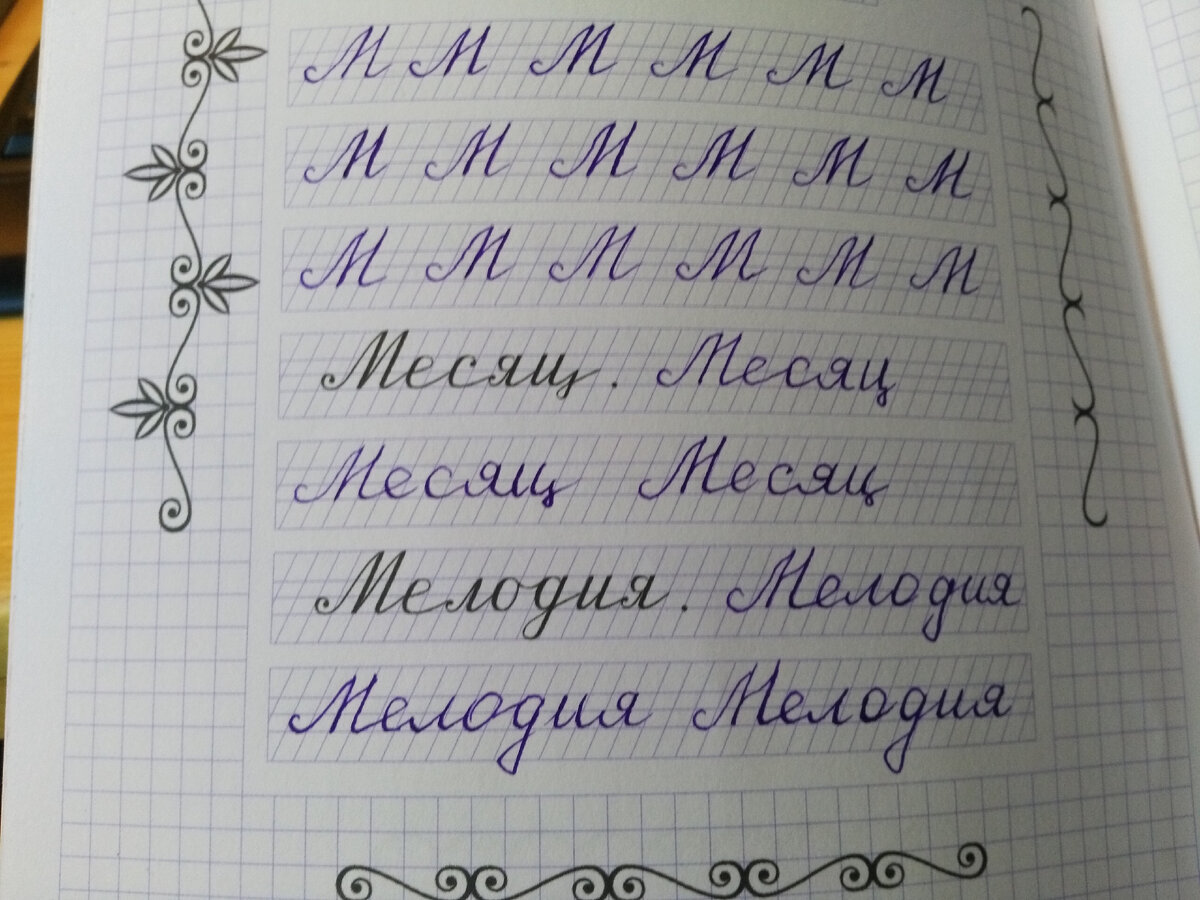 М М М М М М
М М М М М М
М М М М М М
Месяц. Месяц
Месяц Месяц
Мелодия. Мелодия
Мелодия Мелодия